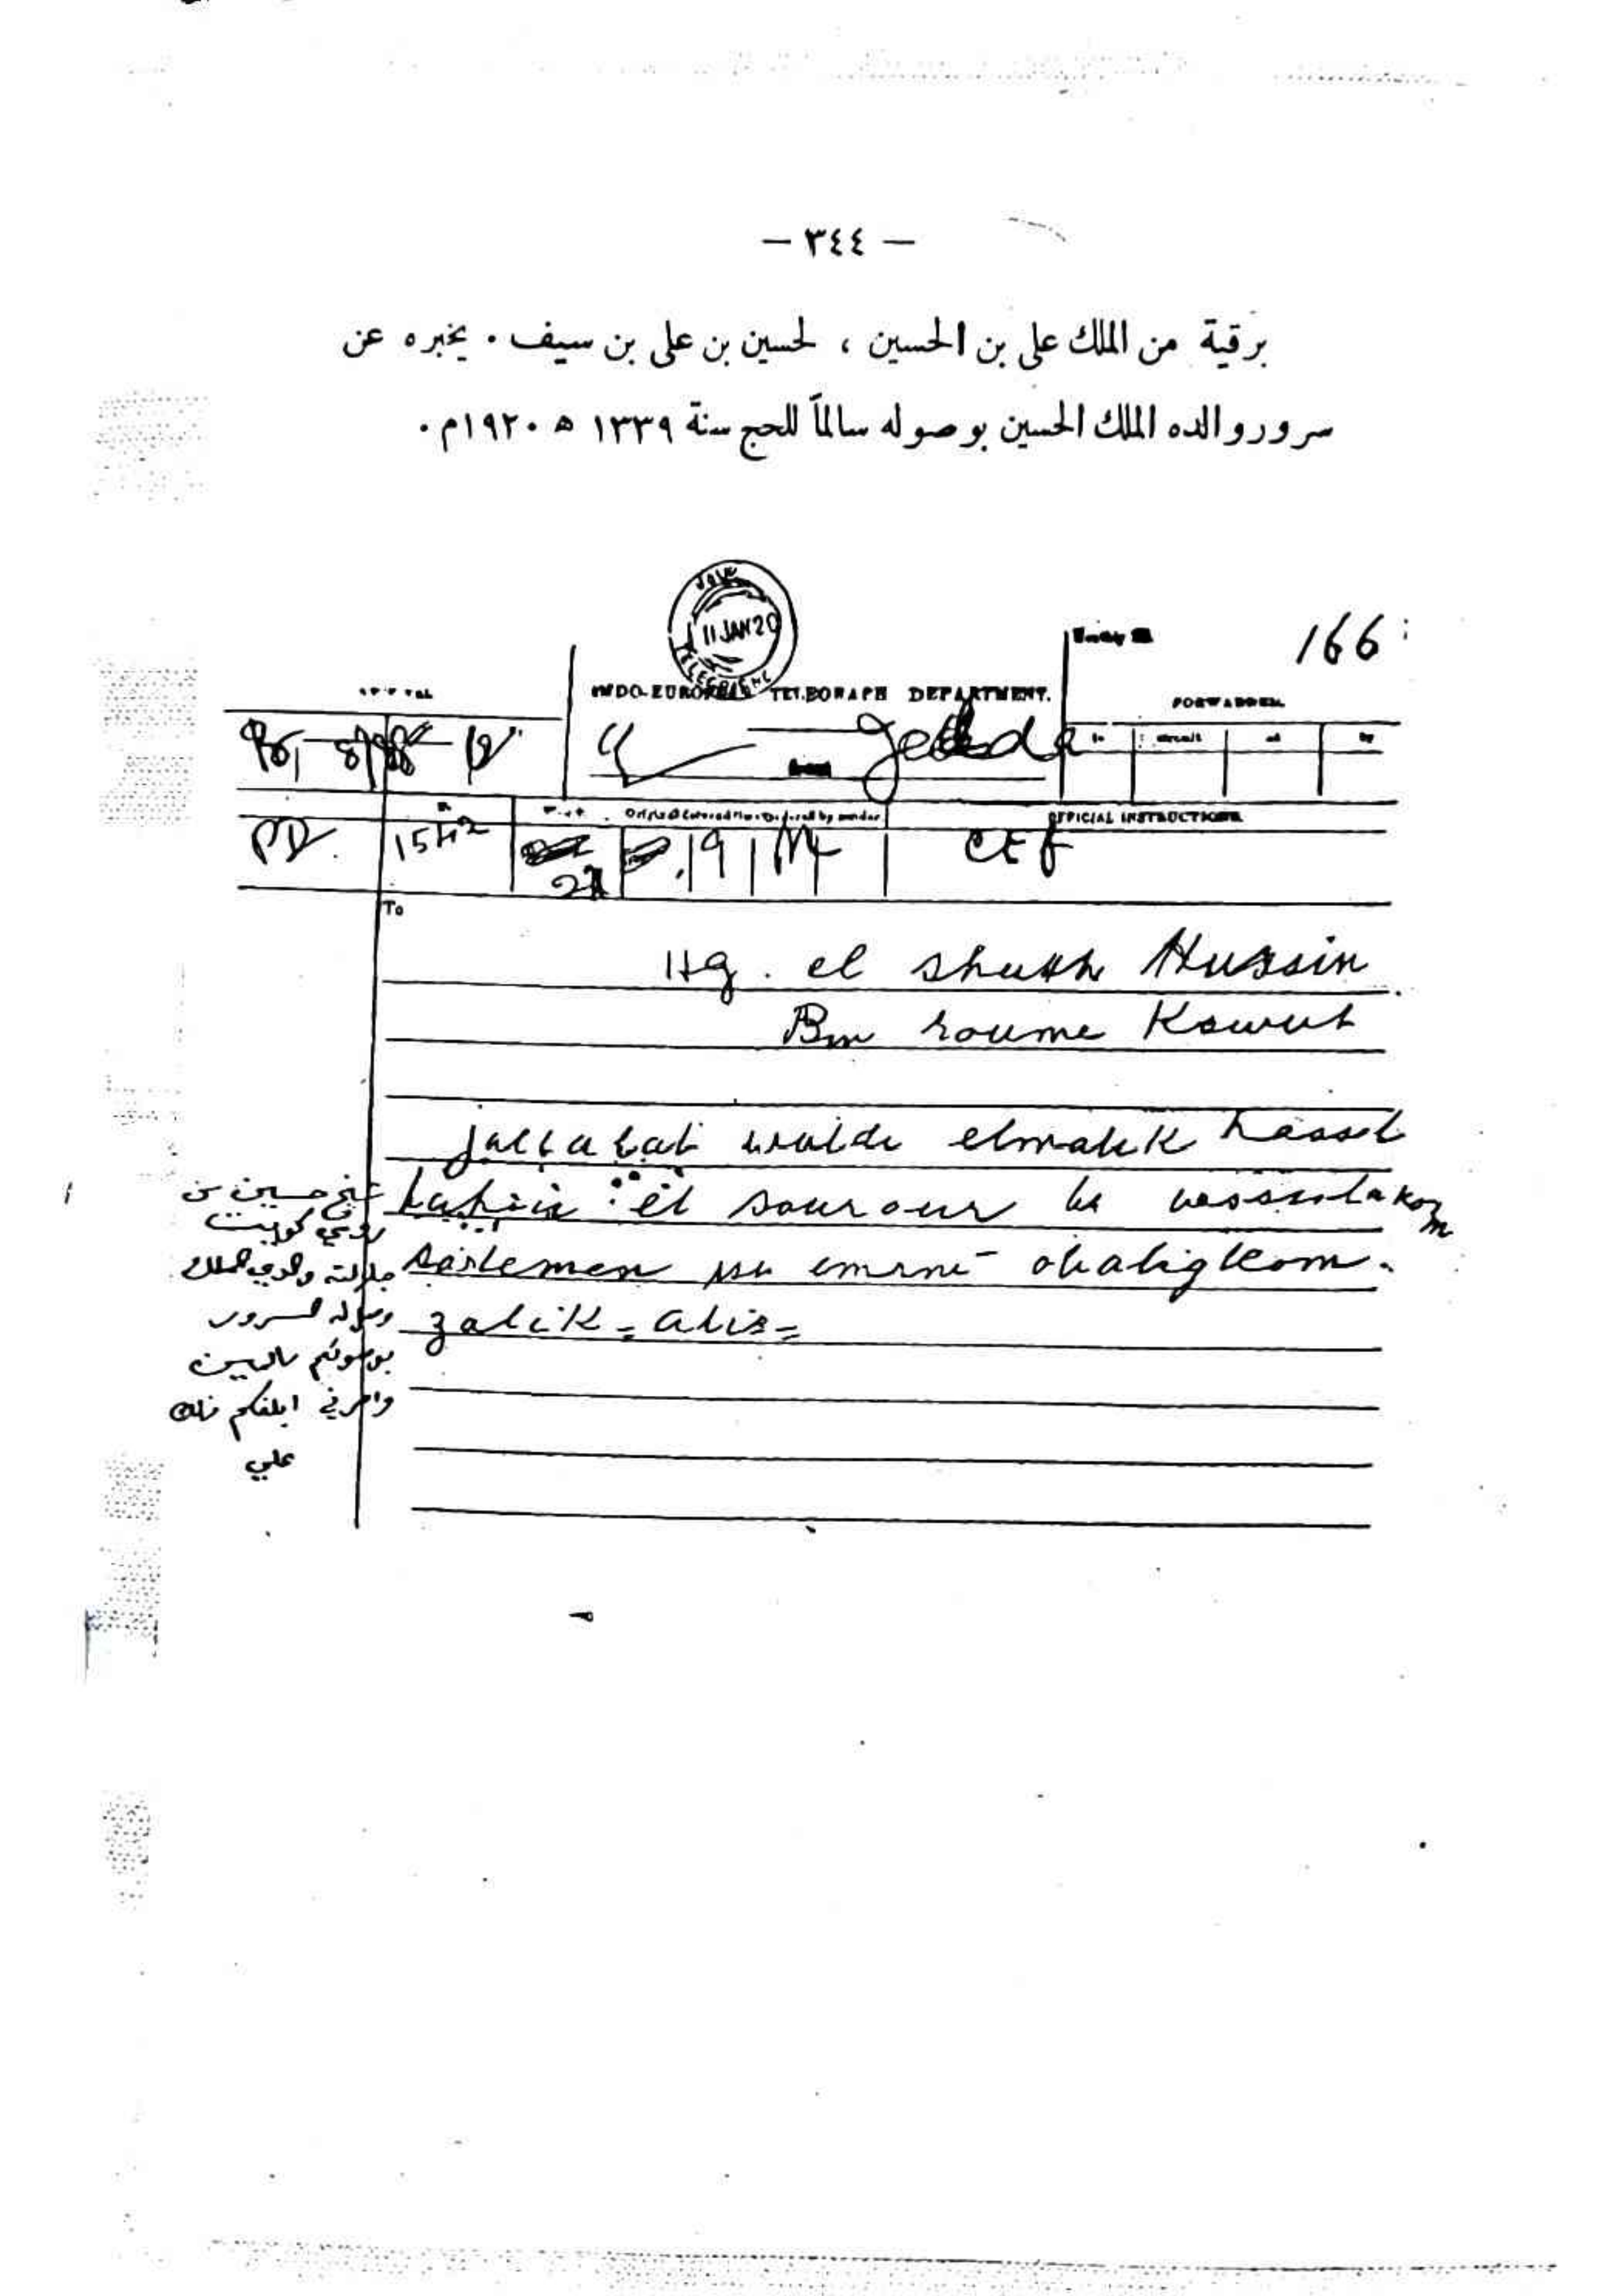 — ٣٤٤ —
برقية من الملك على بن الحسين ، لحسين بن على بن سيف . يخبره عن
سرور والده الملك الحسين بوصوله سالماً للحج سنة ١٣٣٩ ه ١٩٢٠م .
11 JAN 20
166
INDO-EUROPEAN TELEGRAPH DEPARTMENT.
FORWARDED.
Jedda
to circuit at by
OFFICIAL INSTRUCTIONS
PD. 1542 21 19 M
To
Hg. el sheikh Hussein
Bin roume Koweit
jallalat walde elmalik hassal
lahu el sourour be wossulakom
salemen wa emrni obaligkom.
zalik = Ali =
شيخ حسين بن
رومي كويت
جلالة والدي الملك
وصل له السرور
بوصولكم سالمين
وامرني ابلغكم ذلك
علي